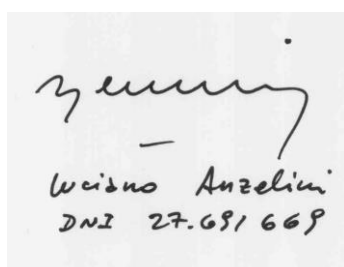 Luciano Anzelini
DNI 27.691669